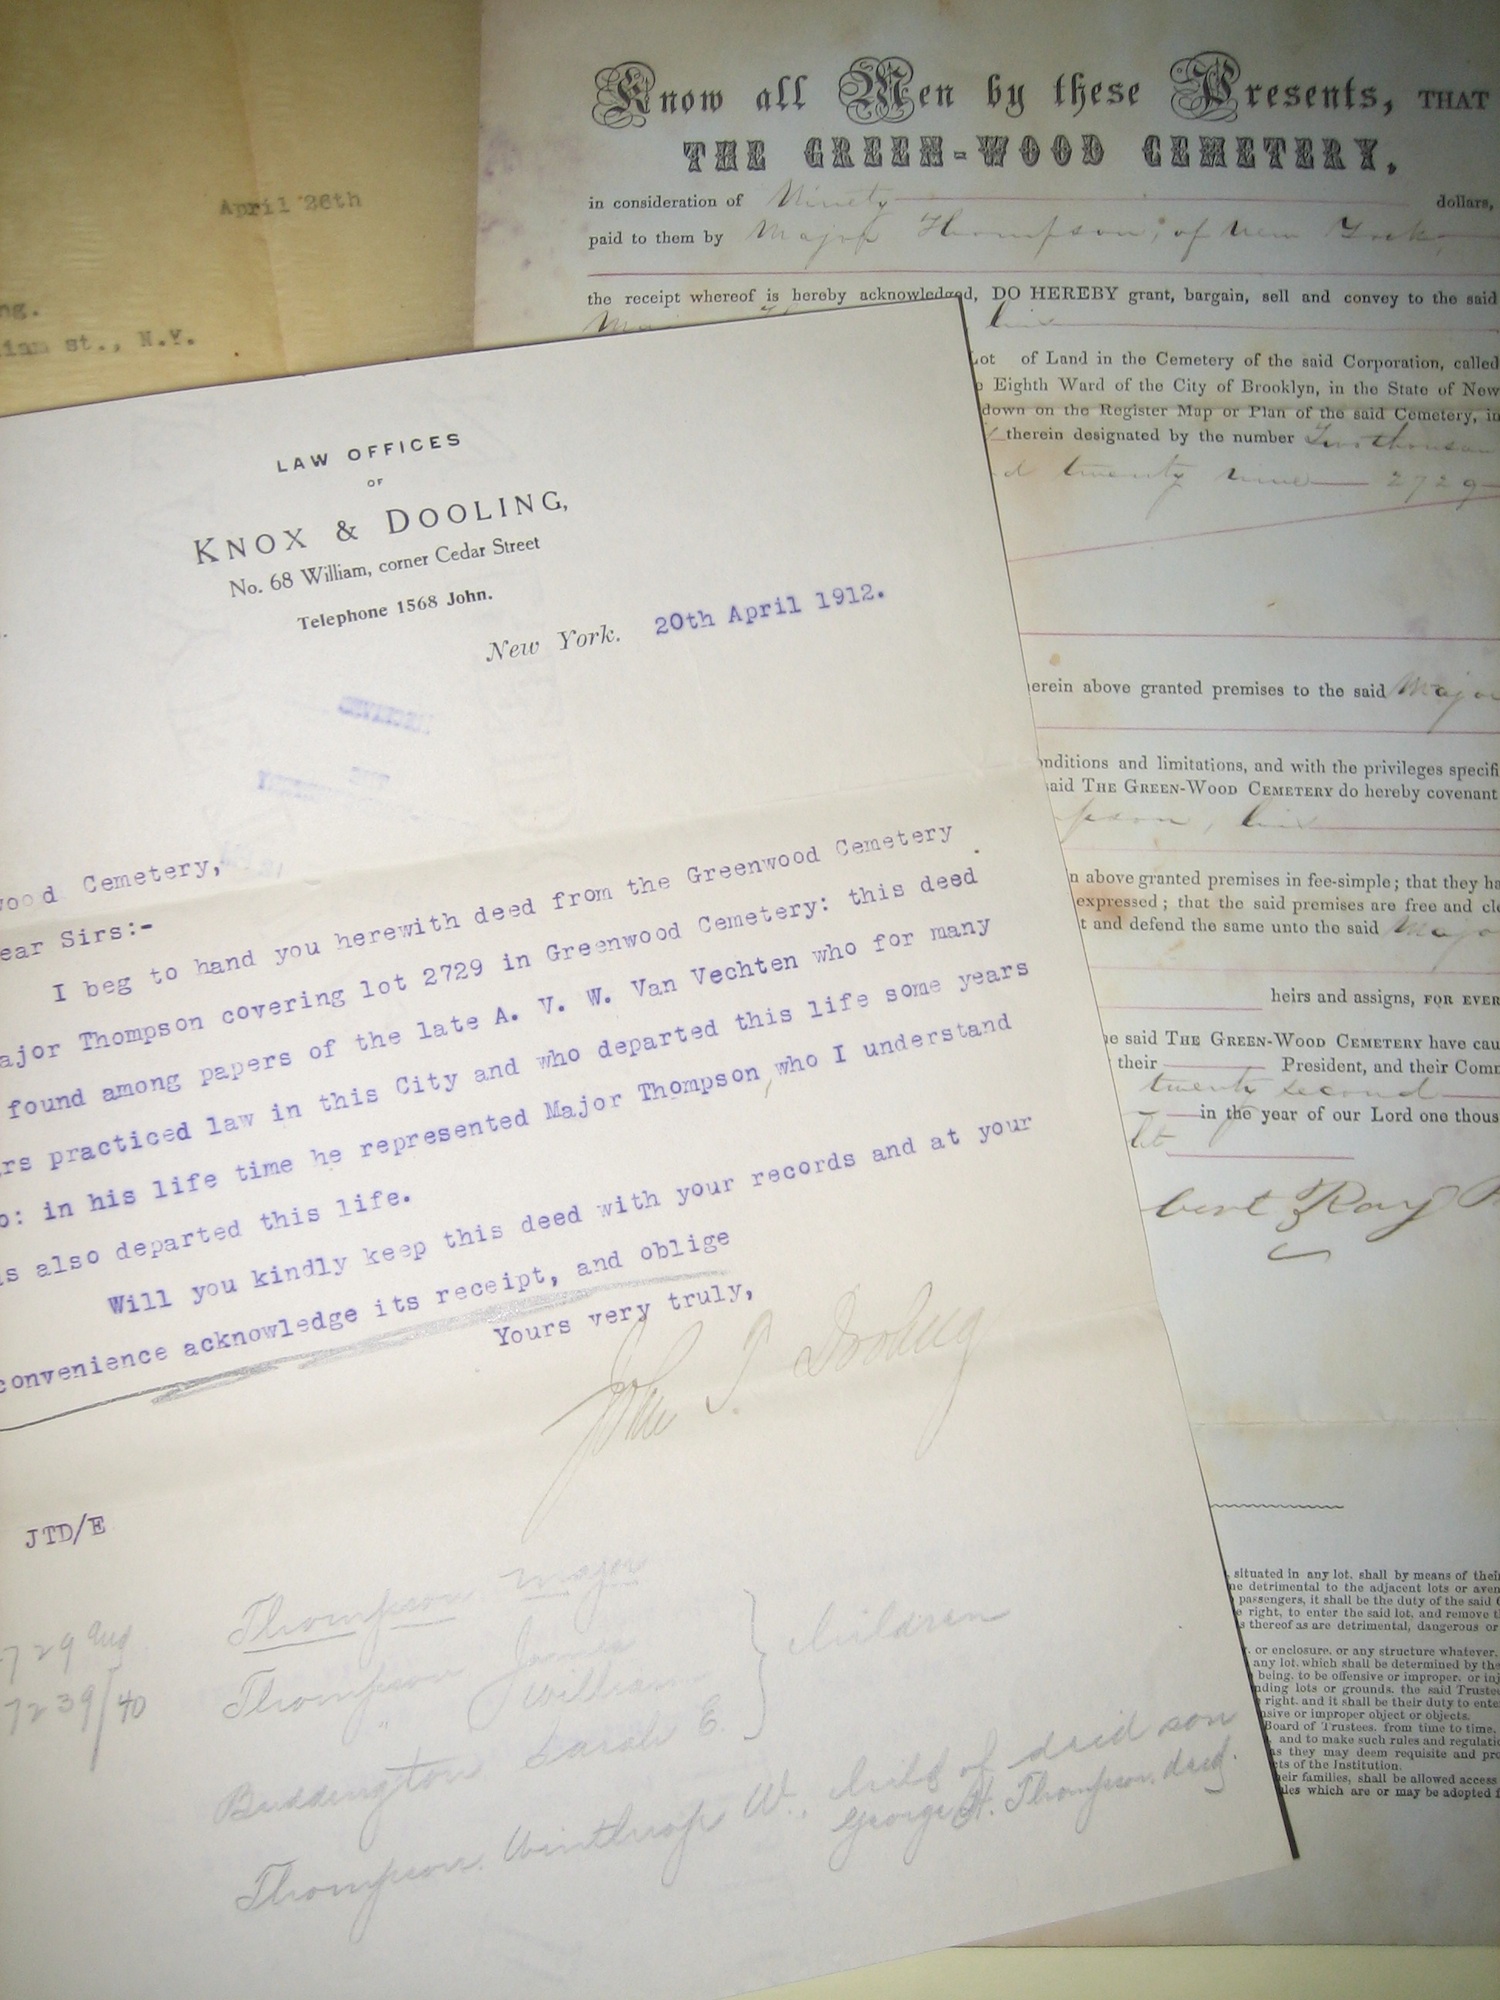 April 26th
ng.
iam st., N.Y.
Know all Men by these Presents, THAT
THE GREEN-WOOD CEMETERY,
in consideration of Ninety dollars,
paid to them by Major Thompson, of New York,
the receipt whereof is hereby acknowledged, DO HEREBY grant, bargain, sell and convey to the said
his
Lot of Land in the Cemetery of the said Corporation, called
e Eighth Ward of the City of Brooklyn, in the State of New
down on the Register Map or Plan of the said Cemetery, in
therein designated by the number Two thousan
d twenty nine 2729
erein above granted premises to the said Major
onditions and limitations, and with the privileges specifi
said THE GREEN-WOOD CEMETERY do hereby covenant
pson, his
n above granted premises in fee-simple; that they ha
expressed; that the said premises are free and cle
t and defend the same unto the said Majo
heirs and assigns, FOR EVER
he said THE GREEN-WOOD CEMETERY have cau
their President, and their Comm
twenty second
in the year of our Lord one thous
bert Ray
situated in any lot, shall by means of their
ne detrimental to the adjacent lots or aven
passengers, it shall be the duty of the said
e right, to enter the said lot, and remove t
s thereof as are detrimental, dangerous or
, or enclosure, or any structure whatever,
any lot, which shall be determined by the
being, to be offensive or improper, or inj
nding lots or grounds, the said Trustee
right, and it shall be their duty to ente
nsive or improper object or objects.
Board of Trustees, from time to time,
, and to make such rules and regulati
as they may deem requisite and pro
cts of the Institution.
eir families, shall be allowed access
les which are or may be adopted f
LAW OFFICES
OF
KNOX & DOOLING,
No. 68 William, corner Cedar Street
Telephone 1568 John.
New York. 20th April 1912.
wood Cemetery,
ear Sirs:-
I beg to hand you herewith deed from the Greenwood Cemetery
ajor Thompson covering lot 2729 in Greenwood Cemetery: this deed
found among papers of the late A. V. W. Van Vechten who for many
rs practiced law in this City and who departed this life some years
o: in his life time he represented Major Thompson, who I understand
s also departed this life.
Will you kindly keep this deed with your records and at your
convenience acknowledge its receipt, and oblige
Yours very truly,
John T. Dooling
JTD/E
729 Aug
Thompson Major
7239/40
Thompson James
" William
Buddington Sarah E.
} children
Thompson Winthrop W., child of decd son
George H. Thompson, decd.